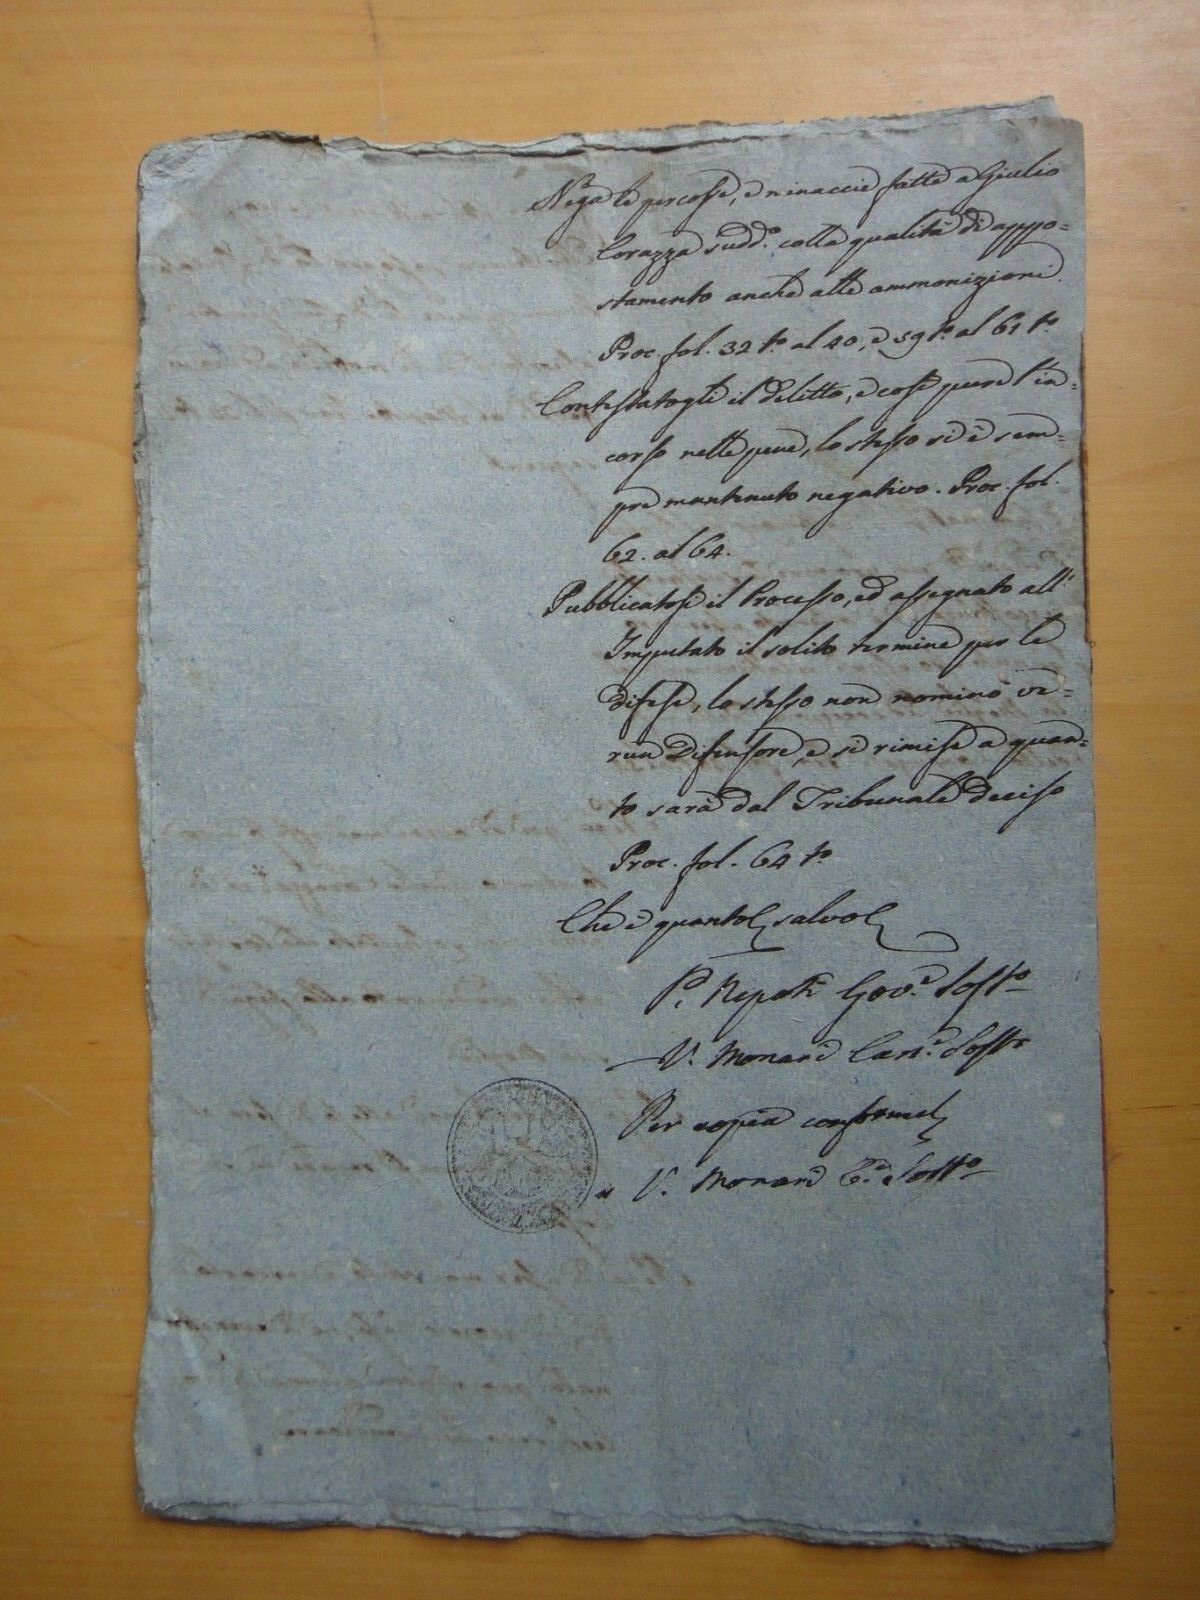 Nega le percosse, e minaccie fatte a Giulio
Corazza sudd.o colla qualità di appo=
stamento anche alle ammonizioni.
Proc. fol. 32 t.o al 40, e 59 t.o al 61 t.o
Contestatogli il delitto, e così pure l'in=
corso nelle pene, lo stesso si è sem=
pre mantenuto negativo. Proc. fol.
62. al 64.
Pubblicatosi il Processo, ed assegnato all'
Imputato il solito termine per le
difese, lo stesso non nominò ve=
run Difensore, e si rimise a quan=
to sarà dal Tribunale deciso
Proc. fol. 64 t.o
Che è quanto salvo
P. Nepoti Gov.e Sost.o
V. Monari Can.e Sost.o
Per copia conforme
V. Monari C.e Sost.o